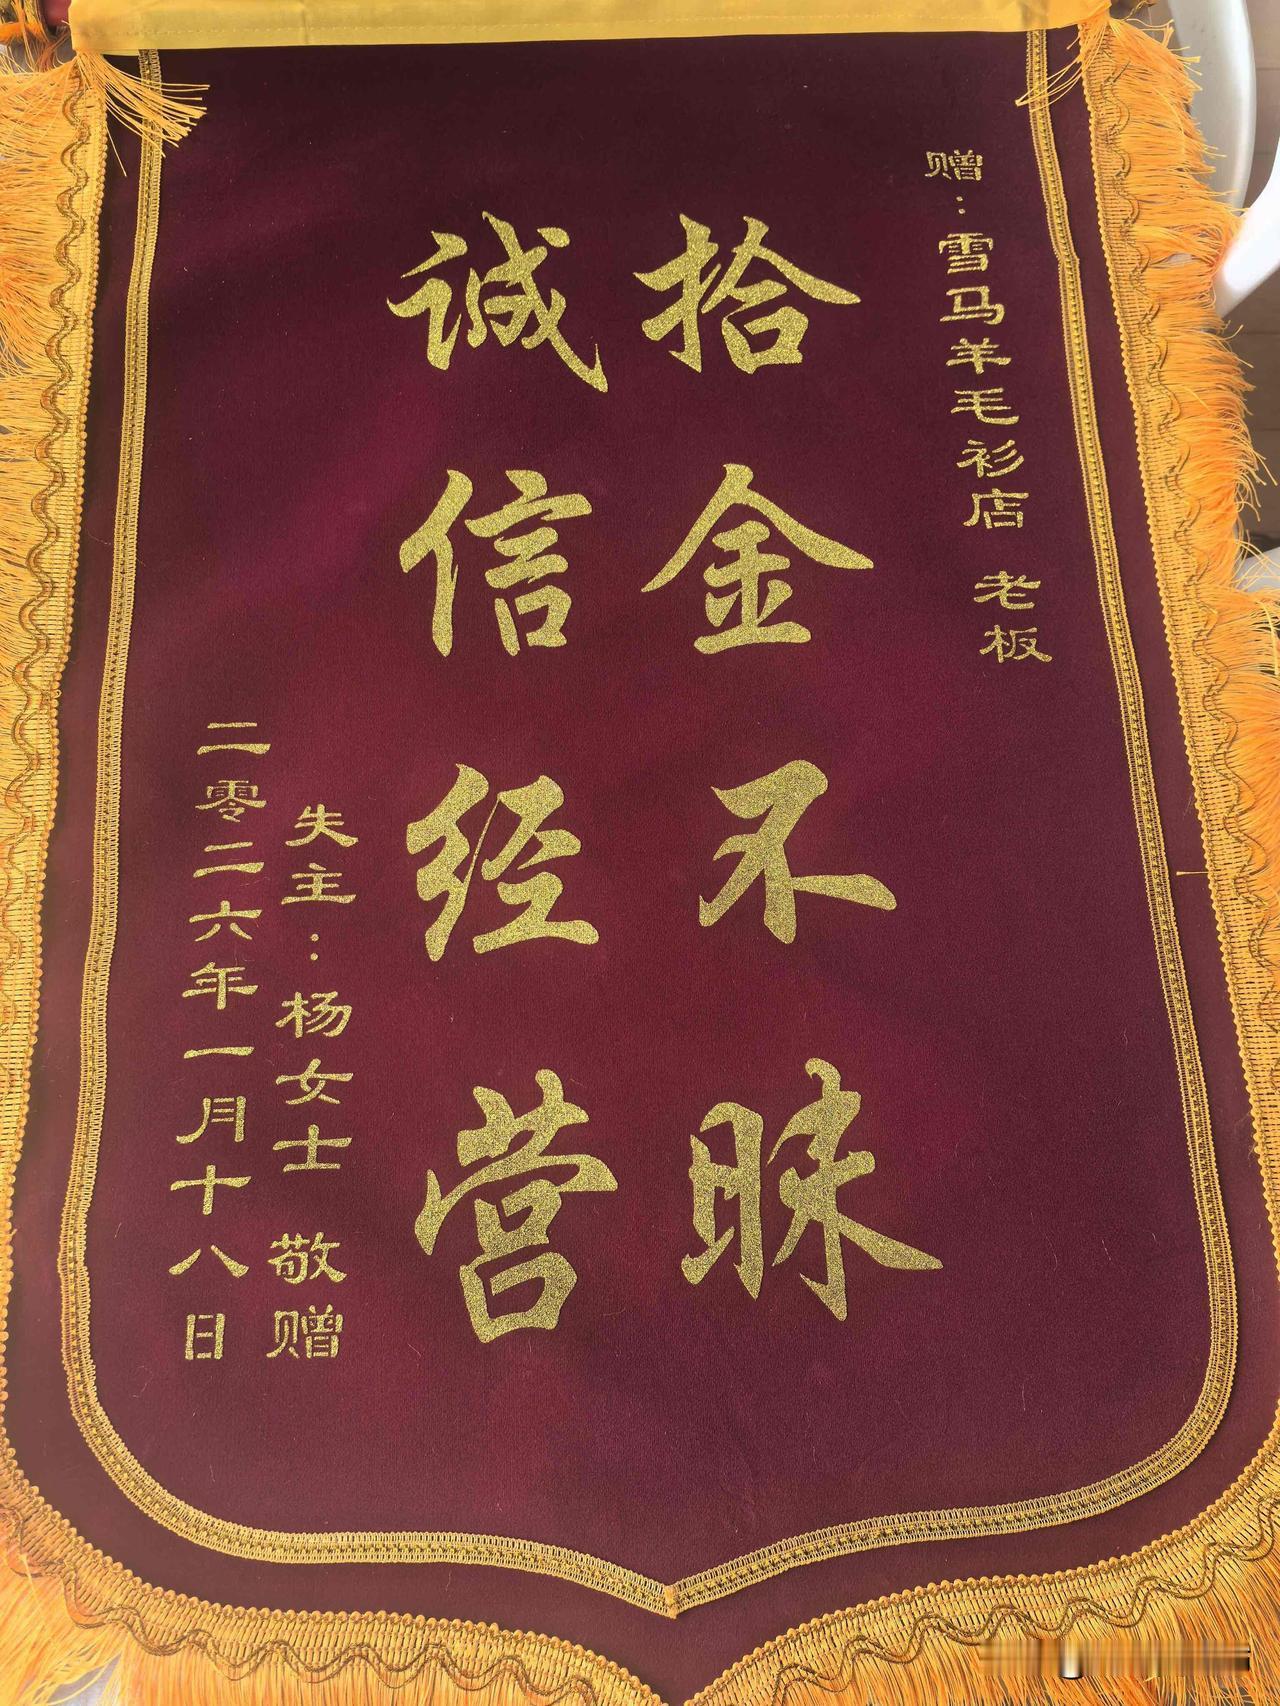 赠：雪马羊毛衫店 老板
拾金不昧
诚信经营
失主：杨女士 敬赠
二零二六年一月十八日